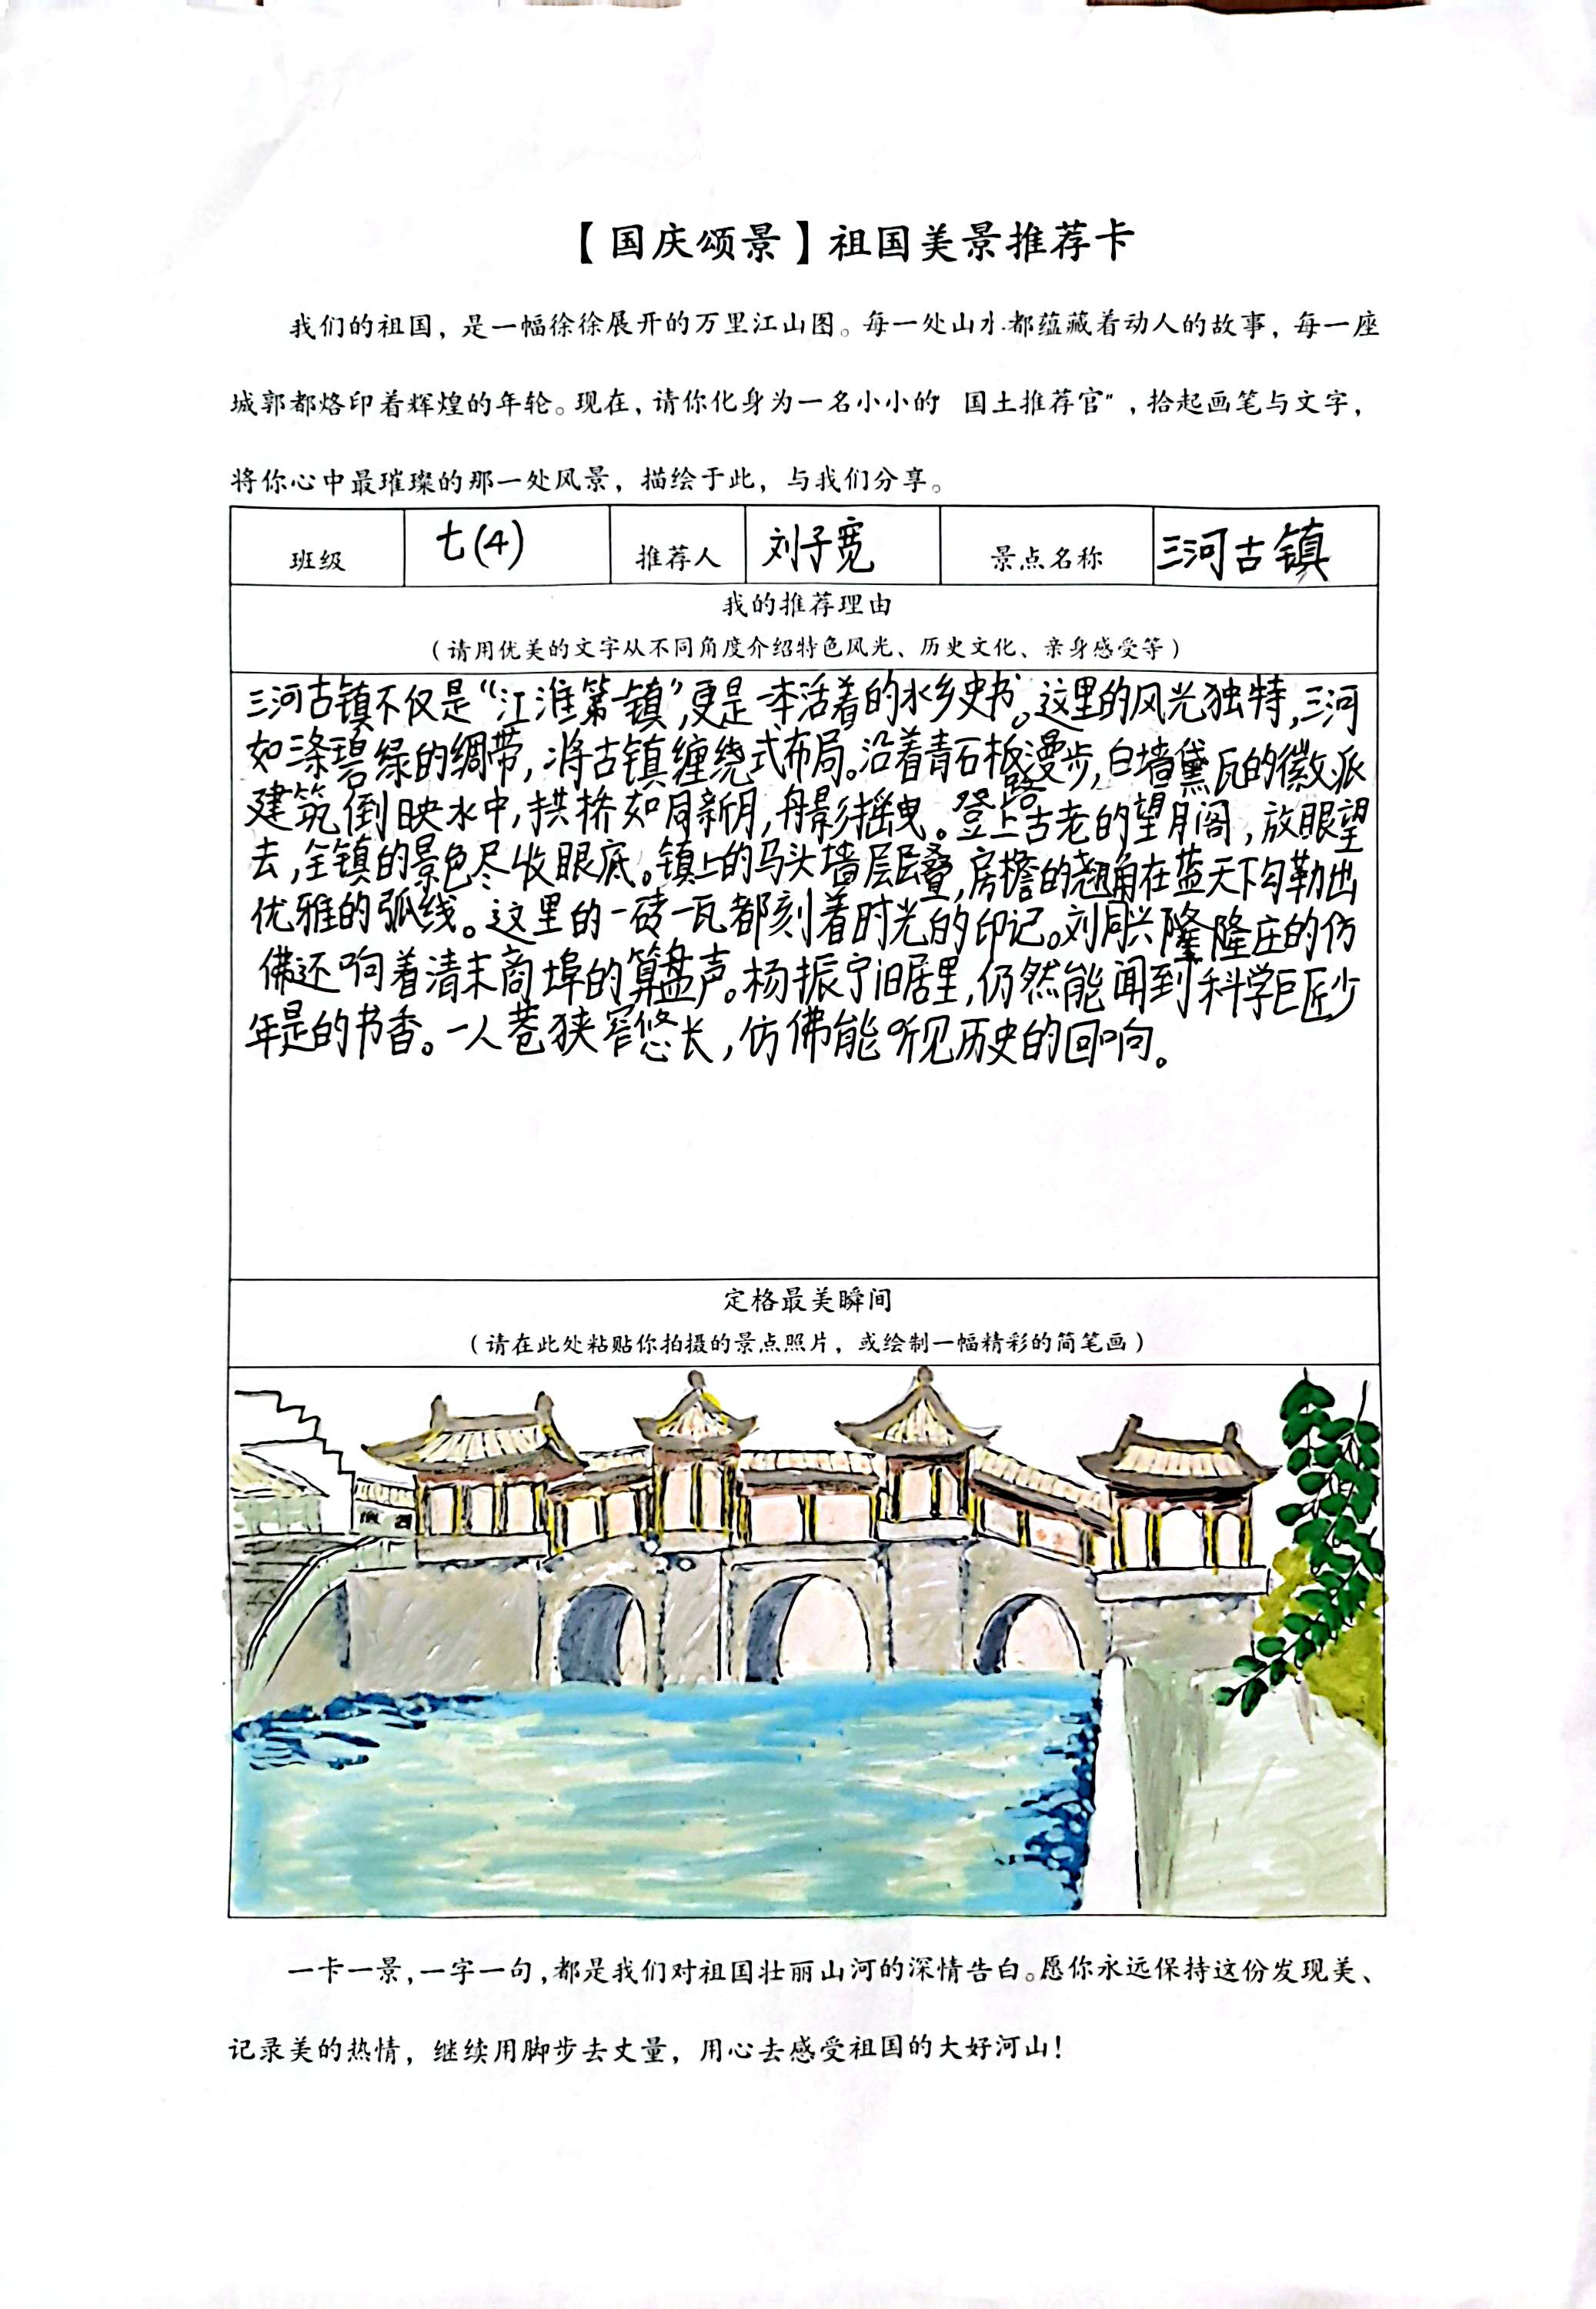 【国庆颂景】祖国美景推荐卡
我们的祖国，是一幅徐徐展开的万里江山图。每一处山水都蕴藏着动人的故事，每一座
城郭都烙印着辉煌的年轮。现在，请你化身为一名小小的 国土推荐官”，拾起画笔与文字，
将你心中最璀璨的那一处风景，描绘于此，与我们分享。
班级 七(4) 推荐人 刘子宽 景点名称 三河古镇
我的推荐理由
（请用优美的文字从不同角度介绍特色风光、历史文化、亲身感受等）
三河古镇不仅是“江淮第一镇”，更是一本活着的水乡史书。这里的风光独特，三河
如三条碧绿的绸带，将古镇缠绕式布局。沿着青石板路漫步，白墙黛瓦的徽派
建筑倒映水中，拱桥如同新月，舟影摇曳。登上古老的望月阁，放眼望
去，全镇的景色尽收眼底。镇上的马头墙层层叠，房檐的翘角在蓝天下勾勒出
优雅的弧线。这里的一砖一瓦都刻着时光的印记。刘同兴隆隆庄的仿
佛还响着清末商埠的算盘声。杨振宁旧居里，仍然能闻到科学巨匠少
年是的书香。一人巷狭窄悠长，仿佛能听见历史的回响。
定格最美瞬间
（请在此处粘贴你拍摄的景点照片，或绘制一幅精彩的简笔画）
一卡一景，一字一句，都是我们对祖国壮丽山河的深情告白。愿你永远保持这份发现美、
记录美的热情，继续用脚步去丈量，用心去感受祖国的大好河山！